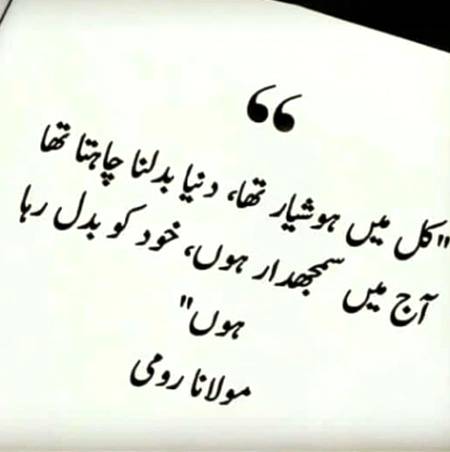 ❝
"کل میں ہوشیار تھا، دنیا بدلنا چاہتا تھا
آج میں سمجھدار ہوں، خود کو بدل رہا
ہوں"
مولانا رومی